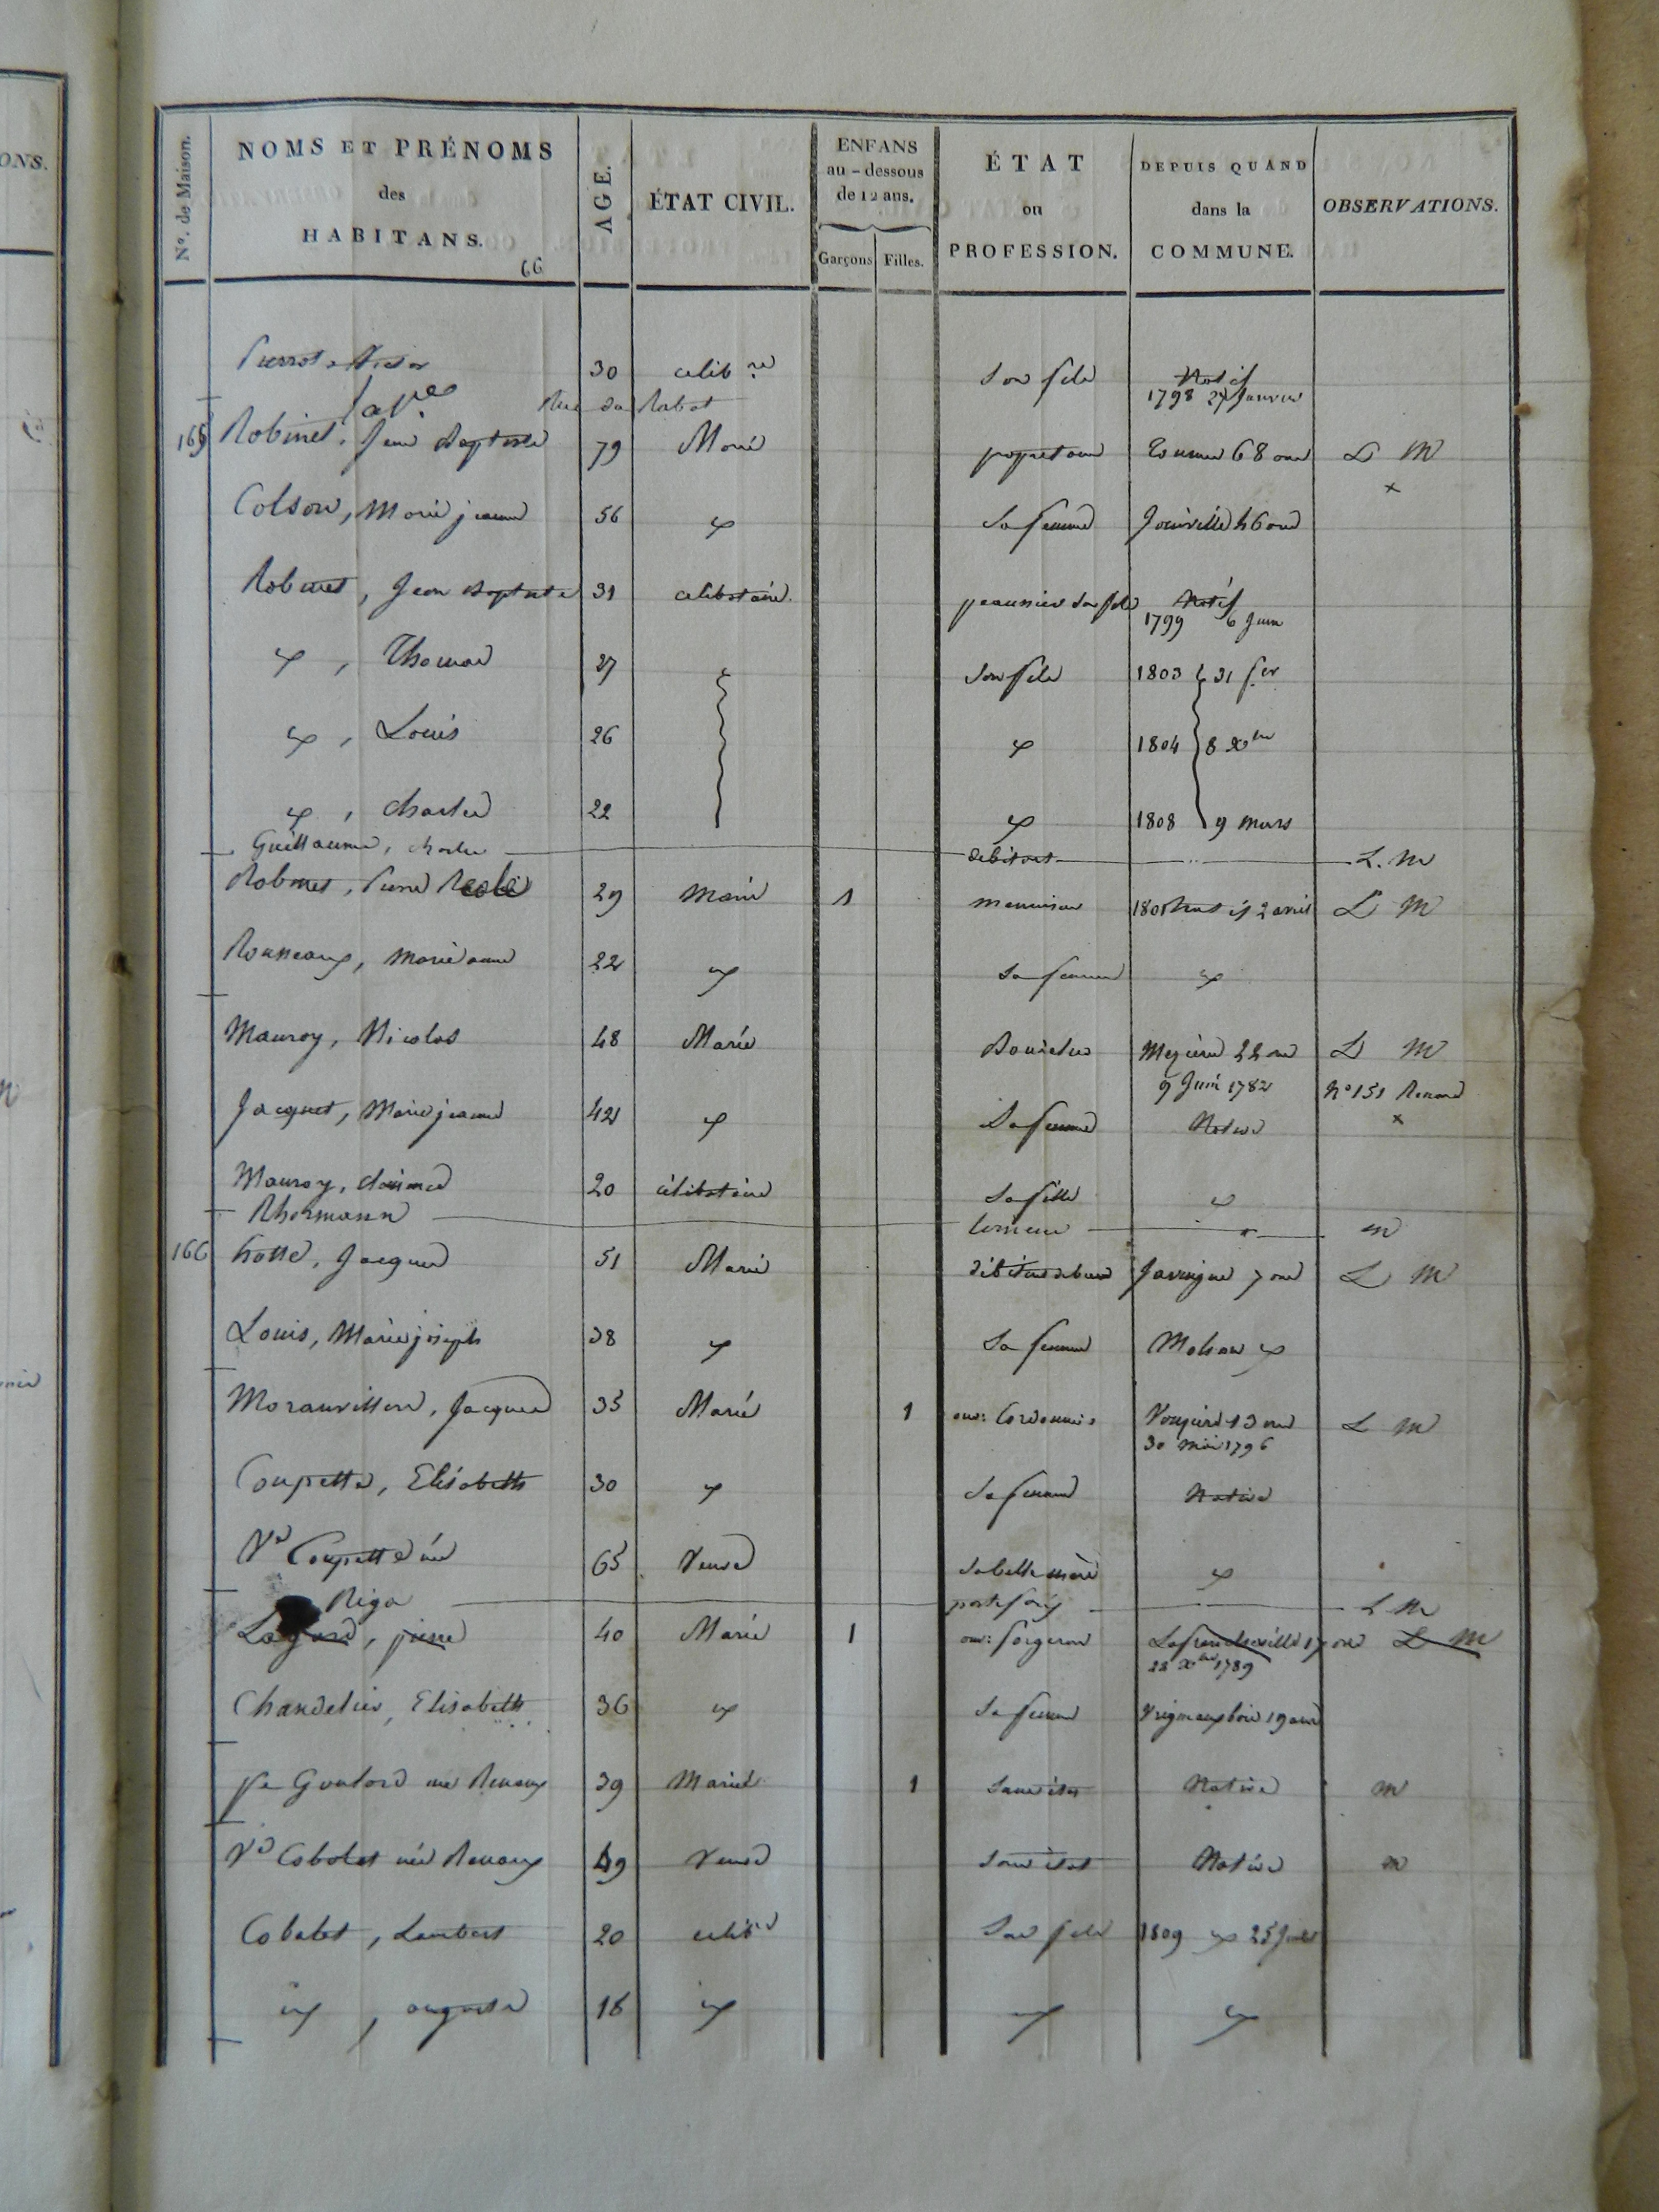 ONS.
N°. de Maison.
NOMS ET PRÉNOMS
des
HABITANS.
66
AGE.
ÉTAT CIVIL.
ENFANS
au-dessous
de 12 ans.
Garçons Filles.
ÉTAT
ou
PROFESSION.
DEPUIS QUAND
dans la
COMMUNE.
OBSERVATIONS.
Pierrot, Victor 30 celib.re Son fils Natif
1798 27 Janvier
Rue du Rabot
165 Robinet, Jean Baptiste 79 Marié propriétaire 68 ans L M
Colson, Marie jeanne 56 Sa femme Joinville 46 ans
Robinet, Jean Baptiste 31 celibataire. son fils Natif
1799 6 Juin
, Thomas 27 Son fils 1803 21 fer
, Louis 26 1804 8 Xbre
, Charles 22 1808 9 mars
Guillaume, charles debitant L. M
Robinet, Pierre 29 Marié 1 menuisier 1801 2 avril L M
Ronneaux, Marie anne 22 Sa femme
Mauroy, Nicolas 48 Marié Mezieres 22 ans L M
9 Juin 1782 N° 151 Renard
Jacquet, Marie jeanne 42 Sa femme Native
Mauroy, 20 célibataire Sa fille
Rhermann m
166 hotte, Jacques 51 Marié 7 ans L M
Louis, Marie joseph 38 Sa femme Mohon
Moranvillers, Jacques 35 Marié 1 ouv: Cordonnier 13 ans L M
30 mai 1796
Coupette, Elisabeth 30 Sa femme Native
Ve Coupette née 65 Veuve Sa belle mère
Riga L M
40 Marié 1 ouv: forgeron Lafrancheville 17 ans L M
22 Xbre 1789
Chandelier, Elisabeth 36 Sa femme Vrigneaubois 19 ans
fe Goulard née Renaux 39 Mariée 1 Sans état Native m
Ve Cobolet née Renaux 49 Veuve Sans état Native m
Cobolet, Lambert 20 celib.e Son fils 1809
, auguste 16